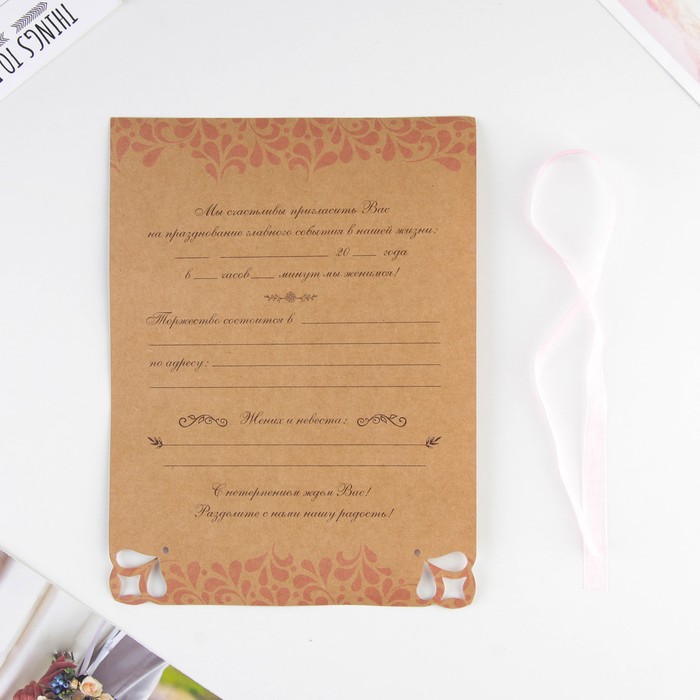 THINGS TO
Мы счастливы пригласить Вас
на празднование главного события в нашей жизни:
____ ________ 20 ___ года
в ___ часов ___ минут мы женимся!
Торжество состоится в ________________
по адресу: ________________
Жених и невеста:
С нетерпением ждем Вас!
Разделите с нами нашу радость!